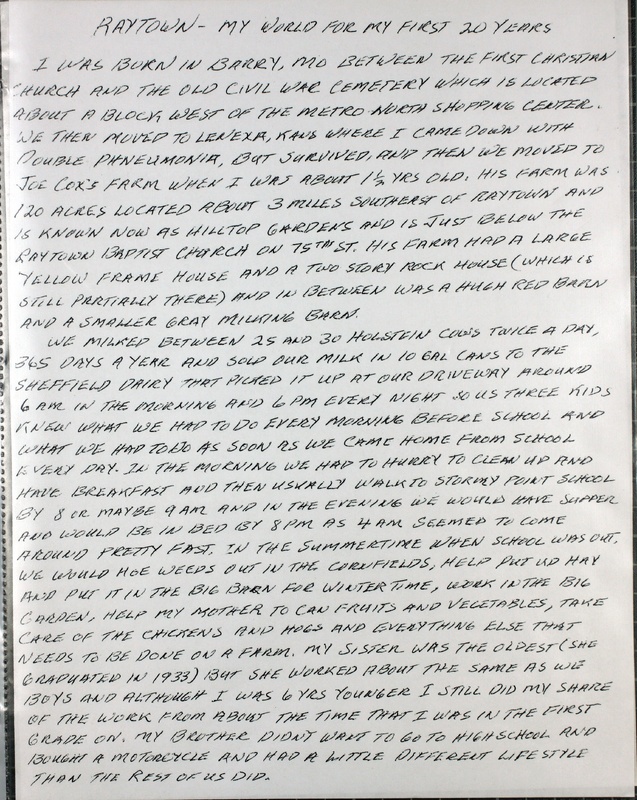 RAYTOWN - MY WORLD FOR MY FIRST 20 YEARS
I WAS BORN IN BARRY, MO BETWEEN THE FIRST CHRISTIAN
CHURCH AND THE OLD CIVIL WAR CEMETERY WHICH IS LOCATED
ABOUT A BLOCK WEST OF THE METRO NORTH SHOPPING CENTER.
WE THEN MOVED TO LENEXA, KANS WHERE I CAME DOWN WITH
DOUBLE PHNEUMONIA, BUT SURVIVED, AND THEN WE MOVED TO
JOE COX'S FARM WHEN I WAS ABOUT 1½ YRS OLD. HIS FARM WAS
120 ACRES LOCATED ABOUT 3 MILES SOUTHEAST OF RAYTOWN AND
IS KNOWN NOW AS HILLTOP GARDENS AND IS JUST BELOW THE
RAYTOWN BAPTIST CHURCH ON 75TH ST. HIS FARM HAD A LARGE
YELLOW FRAME HOUSE AND A TWO STORY ROCK HOUSE (WHICH IS
STILL PARTIALLY THERE) AND IN BETWEEN WAS A HUGH RED BARN
AND A SMALLER GRAY MILKING BARN.
WE MILKED BETWEEN 25 AND 30 HOLSTEIN COWS TWICE A DAY,
365 DAYS A YEAR AND SOLD OUR MILK IN 10 GAL CANS TO THE
SHEFFIELD DAIRY THAT PICKED IT UP AT OUR DRIVEWAY AROUND
6 AM IN THE MORNING AND 6 PM EVERY NIGHT SO US THREE KIDS
KNEW WHAT WE HAD TO DO EVERY MORNING BEFORE SCHOOL AND
WHAT WE HAD TO DO AS SOON AS WE CAME HOME FROM SCHOOL
EVERY DAY. IN THE MORNING WE HAD TO HURRY TO CLEAN UP AND
HAVE BREAKFAST AND THEN USUALLY WALK TO STORMY POINT SCHOOL
BY 8 OR MAYBE 9 AM AND IN THE EVENING WE WOULD HAVE SUPPER
AND WOULD BE IN BED BY 8 PM AS 4 AM SEEMED TO COME
AROUND PRETTY FAST. IN THE SUMMERTIME WHEN SCHOOL WAS OUT,
WE WOULD HOE WEEDS OUT IN THE CORNFIELDS, HELP PUT UP HAY
AND PUT IT IN THE BIG BARN FOR WINTERTIME, WORK IN THE BIG
GARDEN, HELP MY MOTHER TO CAN FRUITS AND VEGETABLES, TAKE
CARE OF THE CHICKENS AND HOGS AND EVERYTHING ELSE THAT
NEEDS TO BE DONE ON A FARM. MY SISTER WAS THE OLDEST (SHE
GRADUATED IN 1933) BUT SHE WORKED ABOUT THE SAME AS WE
BOYS AND ALTHOUGH I WAS 6 YRS YOUNGER I STILL DID MY SHARE
OF THE WORK FROM ABOUT THE TIME THAT I WAS IN THE FIRST
GRADE ON. MY BROTHER DIDN'T WANT TO GO TO HIGH SCHOOL AND
BOUGHT A MOTORCYCLE AND HAD A LITTLE DIFFERENT LIFESTYLE
THAN THE REST OF US DID.